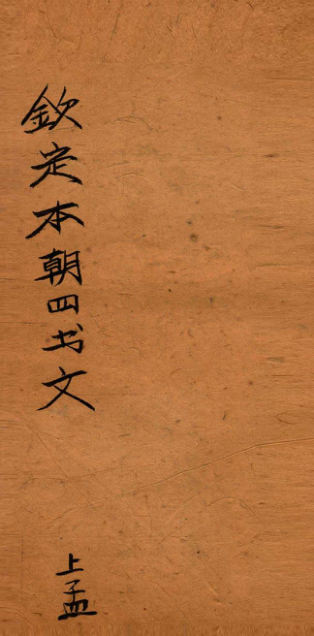 钦定本朝四书文
上孟